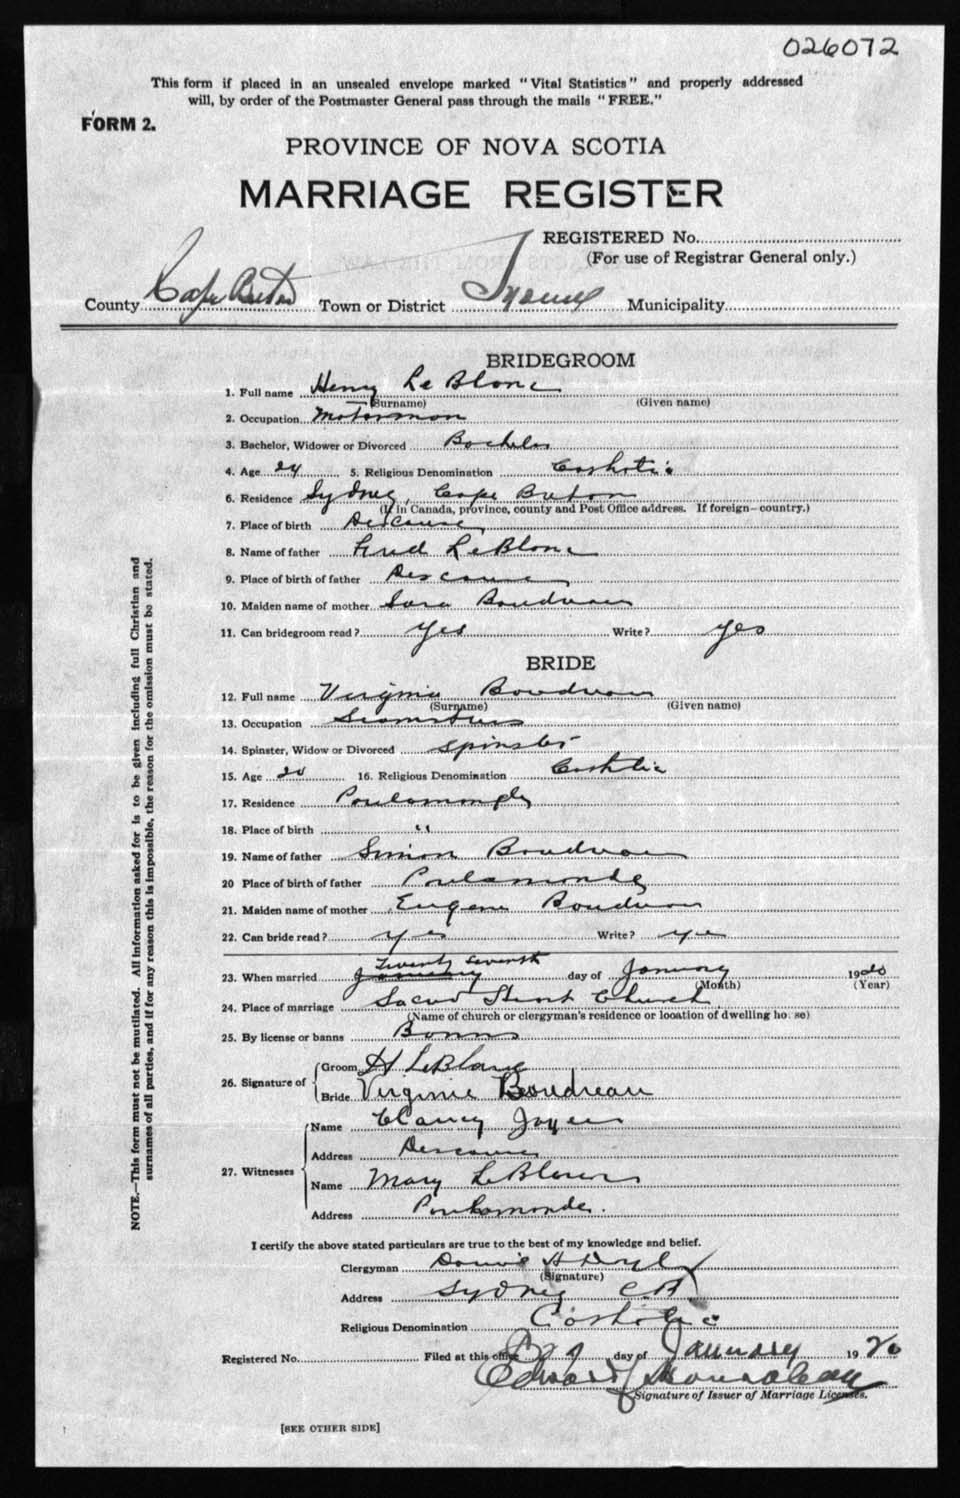 026072
This form if placed in an unsealed envelope marked "Vital Statistics" and properly addressed
will, by order of the Postmaster General pass through the mails "FREE."
FORM 2.
PROVINCE OF NOVA SCOTIA
MARRIAGE REGISTER
REGISTERED No.
(For use of Registrar General only.)
County Cape Breton Town or District Sydney Municipality
BRIDEGROOM
1. Full name Henry Le Blanc
(Surname) (Given name)
2. Occupation Motorman
3. Bachelor, Widower or Divorced Bachelor
4. Age 24 5. Religious Denomination Catholic
6. Residence Sydney, Cape Breton
(If in Canada, province, county and Post Office address. If foreign—country.)
7. Place of birth Descouse
8. Name of father Fred LeBlanc
9. Place of birth of father Descouse
10. Maiden name of mother Sara Boudreau
11. Can bridegroom read? Yes Write? yes
BRIDE
12. Full name Virginie Boudreau
(Surname) (Given name)
13. Occupation Seamstress
14. Spinster, Widow or Divorced Spinster
15. Age 20 16. Religious Denomination Catholic
17. Residence Poulamond
18. Place of birth "
19. Name of father Simon Boudreau
20 Place of birth of father Poulamonde
21. Maiden name of mother Eugene Boudreau
22. Can bride read? yes Write? yes
Twenty seventh
23. When married January day of January 1920
(Month) (Year)
24. Place of marriage Sacred Heart Church
(Name of church or clergyman's residence or location of dwelling house)
25. By license or banns Banns
26. Signature of Groom H LeBlanc
Bride Virginie Boudreau
27. Witnesses Name Clancy Joyce
Address Descouse
Name Mary LeBlanc
Address Poulamonde.
I certify the above stated particulars are true to the best of my knowledge and belief.
Clergyman
(Signature)
Address Sydney C.B.
Religious Denomination Catholic
Registered No. Filed at this office day of January 1920
Edward
Signature of Issuer of Marriage Licenses.
[SEE OTHER SIDE]
NOTE.—This form must not be mutilated. All information asked for is to be given including full Christian and
surnames of all parties, and if for any reason this is impossible, the reason for the omission must be stated.